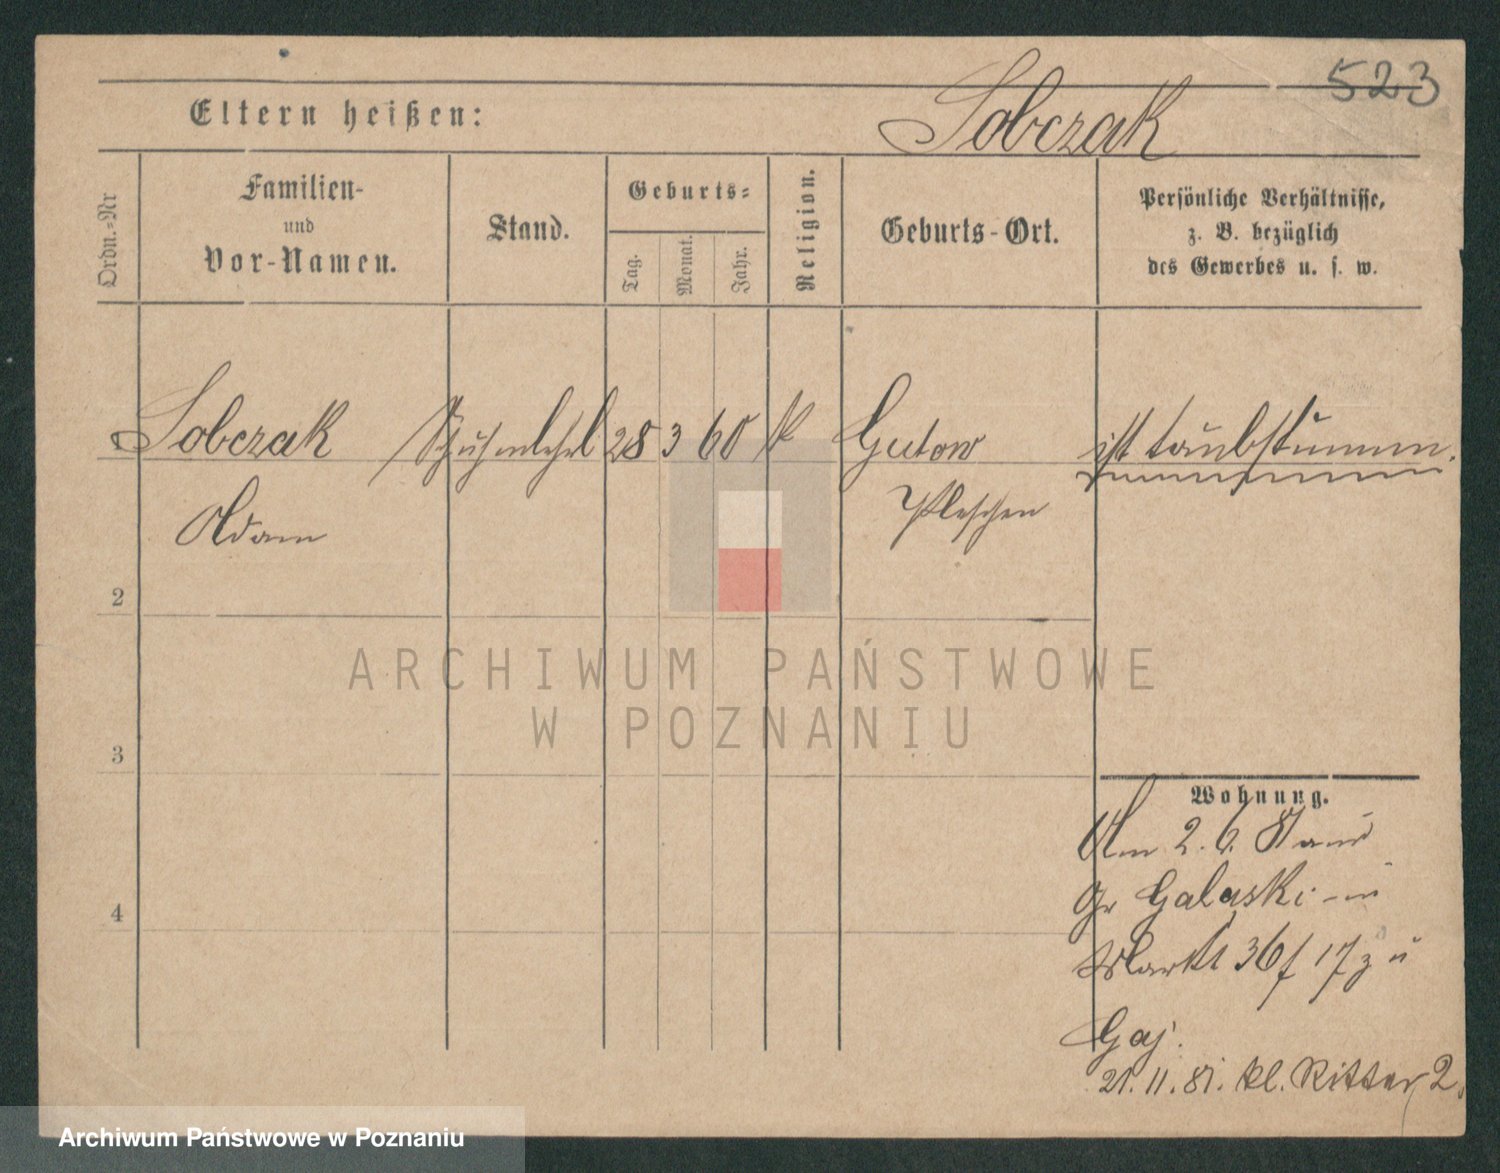 523
Eltern heißen: Sobczak
Ordn.-Nr
Familien-
und
Vor-Namen.
Stand.
Geburts-
Tag.
Monat.
Jahr.
Religion.
Geburts-Ort.
Persönliche Verhältnisse,
z. B. bezüglich
des Gewerbes u. s. w.
Sobczak 28 3 60 k Gutow ist taubstumm.
Adam Pleschen
2
3
4
ARCHIWUM PAŃSTWOWE
W POZNANIU
Wohnung.
Am 2. 6.
Gr
Markt 36 17 z
Gaj.
21. 11. 81. kl. Ritter 2.
Archiwum Państwowe w Poznaniu